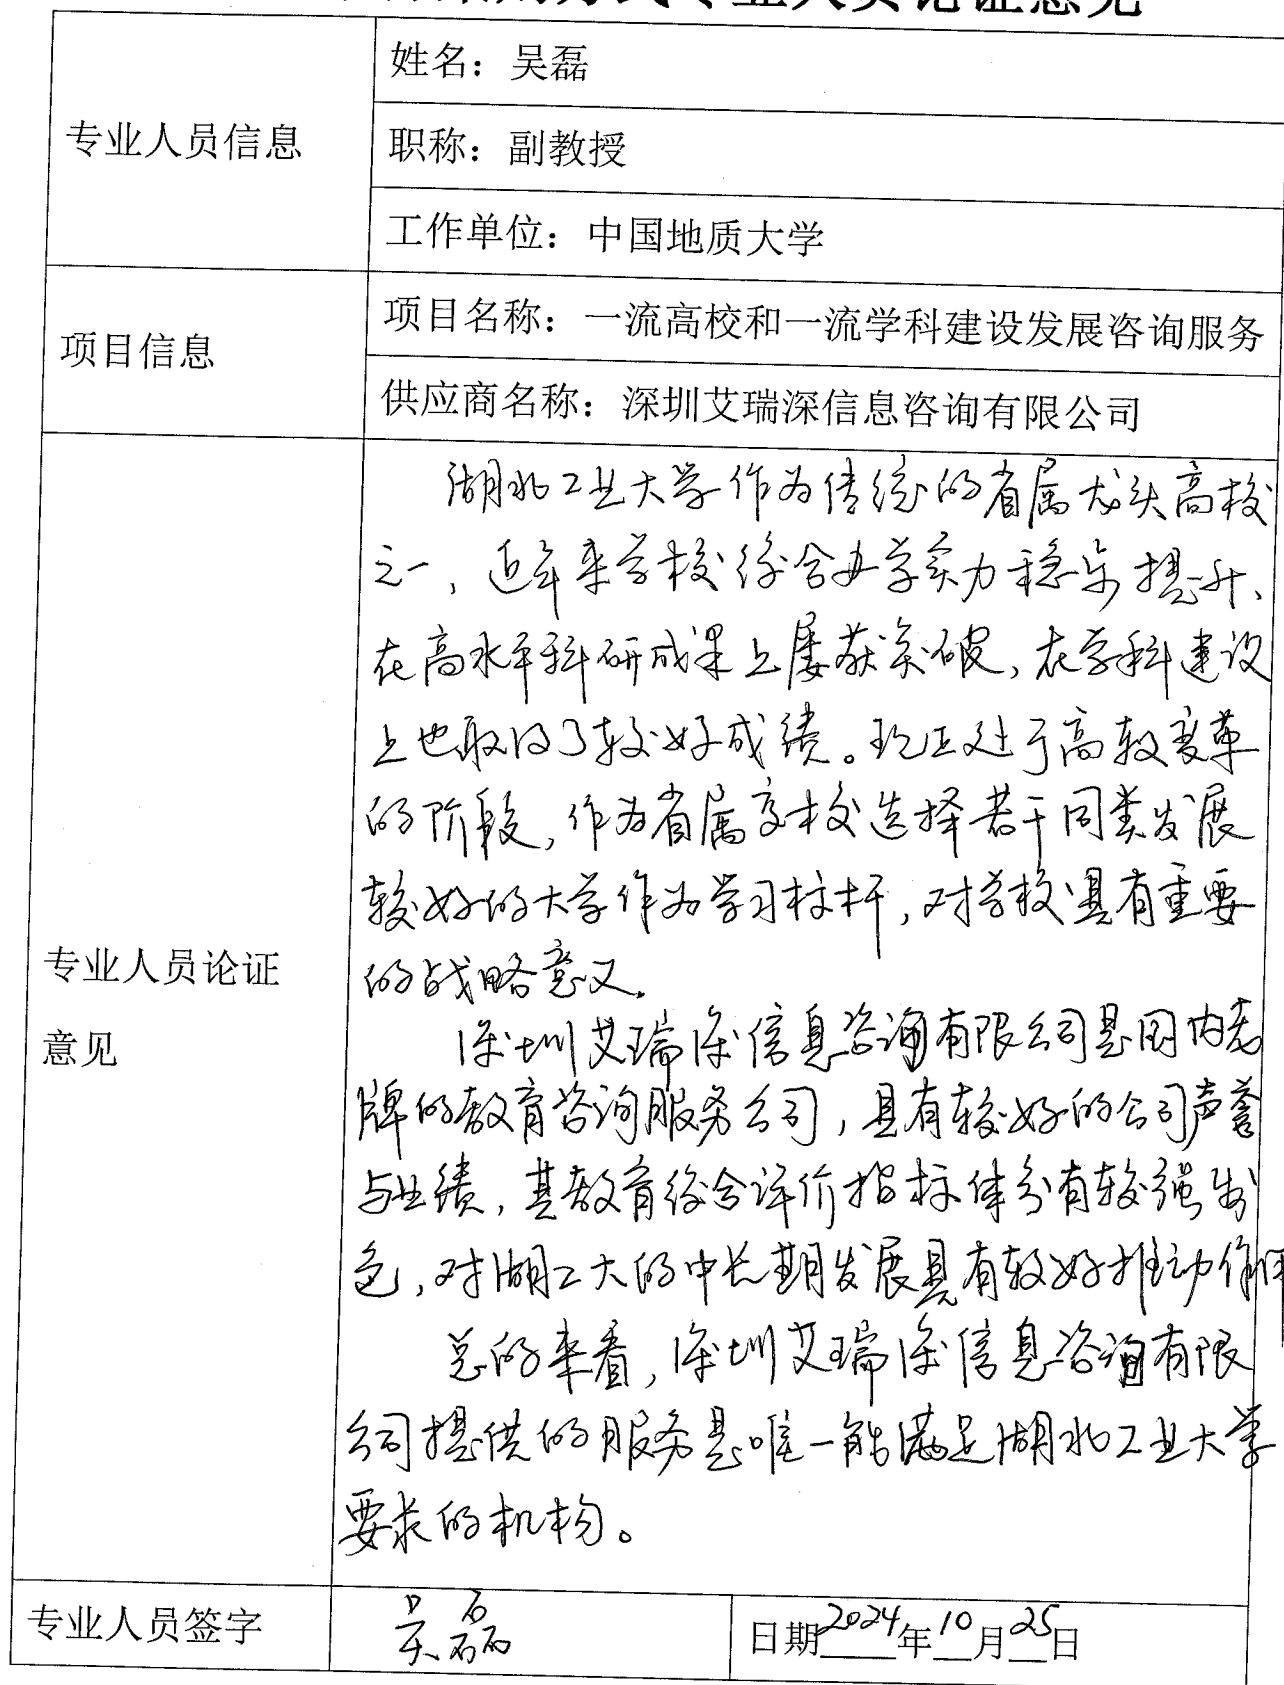 方式专业人员论证意见
专业人员信息
姓名：吴磊
职称：副教授
工作单位：中国地质大学
项目信息
项目名称：一流高校和一流学科建设发展咨询服务
供应商名称：深圳艾瑞深信息咨询有限公司
专业人员论证
意见
湖北工业大学作为传统的省属龙头高校
之一，近年来学校综合办学实力稳步提升、
在高水平科研成果上屡获突破，在学科建设
上也取得了较好成绩。现正处于高较变革
的阶段，作为省属高校选择若干同类发展
较好的大学作为学习标杆，对学校具有重要
的战略意义。
深圳艾瑞深信息咨询有限公司是国内老
牌的教育咨询服务公司，具有较好的公司声誉
与业绩，其教育综合评价指标体系有较强特
色，对湖工大的中长期发展具有较好推动作用
总的来看，深圳艾瑞深信息咨询有限
公司提供的服务是唯一能满足湖北工业大学
要求的机构。
专业人员签字
吴磊
日期2024年10月25日